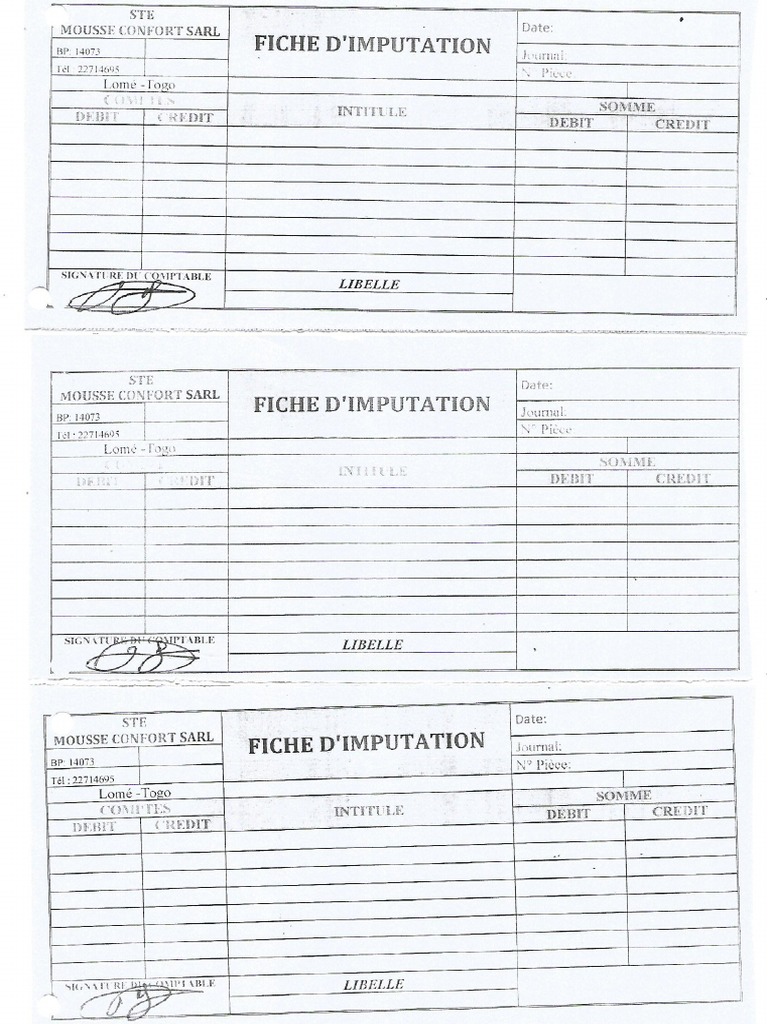 STE
MOUSSE CONFORT SARL
BP: 14073
Tél : 22714695
Lomé -Togo
FICHE D'IMPUTATION
Date:
Journal:
N° Pièce:
COMPTES
DEBIT CREDIT
INTITULE
SOMME
DEBIT CREDIT
SIGNATURE DU COMPTABLE
LIBELLE
STE
MOUSSE CONFORT SARL
BP: 14073
Tél : 22714695
Lomé -Togo
FICHE D'IMPUTATION
Date:
Journal:
N° Pièce:
DEBIT CREDIT
INTITULE
SOMME
DEBIT CREDIT
SIGNATURE DU COMPTABLE
LIBELLE
STE
MOUSSE CONFORT SARL
BP: 14073
Tél : 22714695
Lomé -Togo
FICHE D'IMPUTATION
Date:
Journal:
N° Pièce:
COMPTES
DEBIT CREDIT
INTITULE
SOMME
DEBIT CREDIT
SIGNATURE DU COMPTABLE
LIBELLE